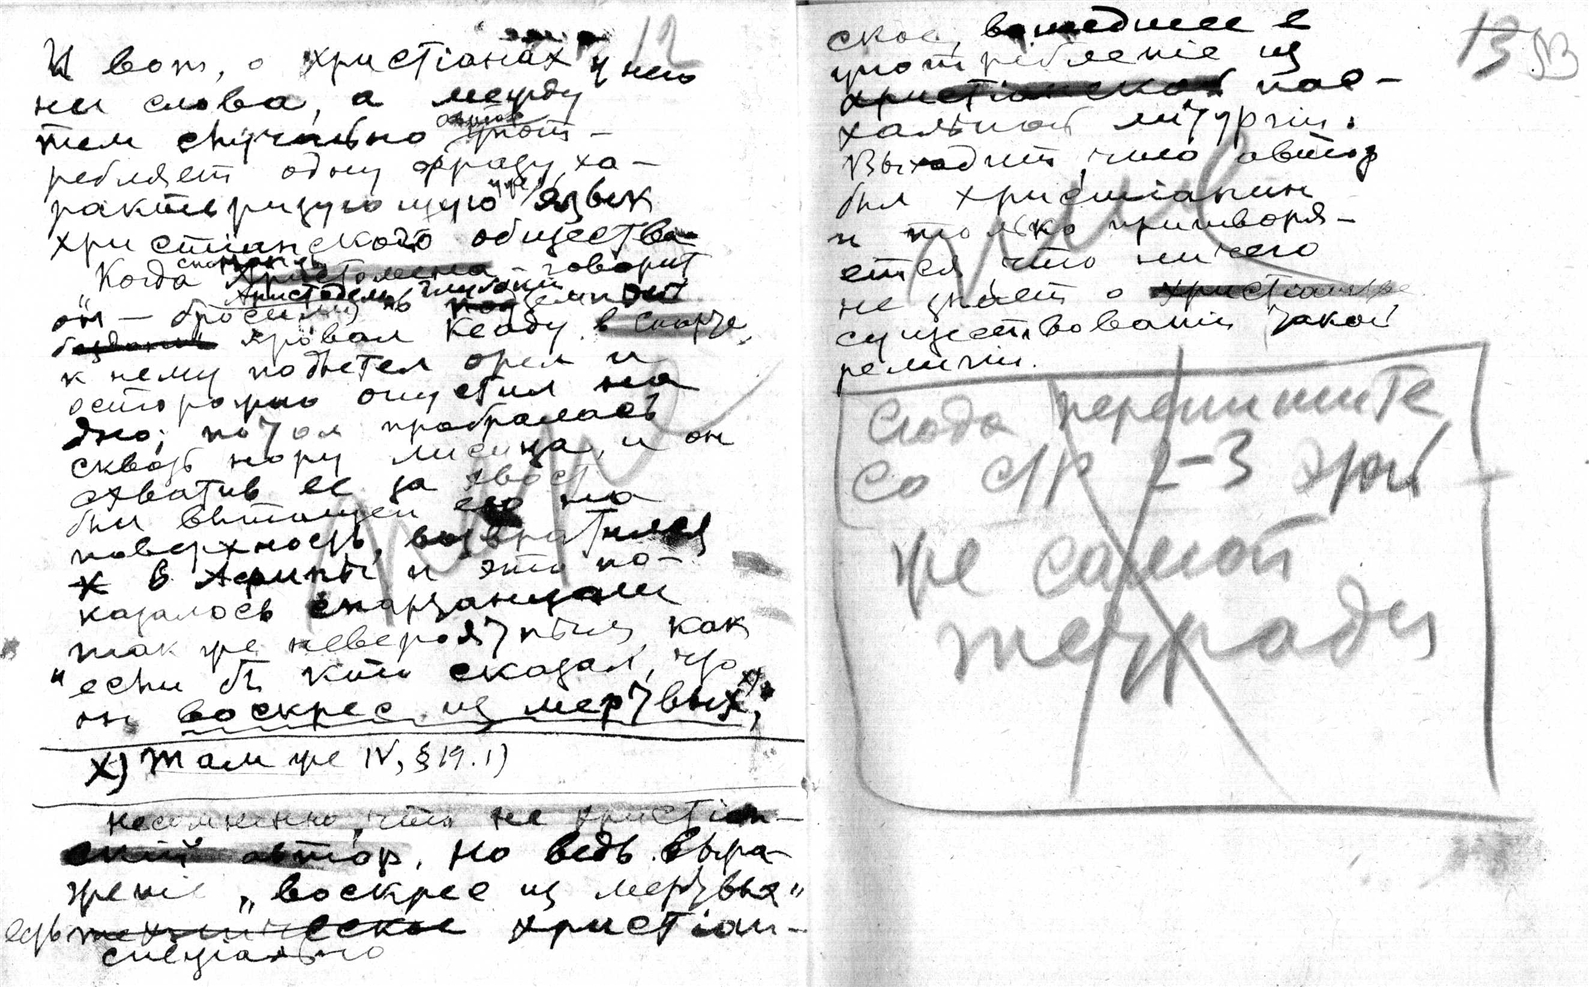 12
И вот, о христіанах у него
ни слова, а между
тем случайно автор упот-
ребляет одну фразу ха-
рактеризующую уже язык
христіанского общества
Когда говорит
он — бросили в
провал Кеаду в Спарте,
к нему подлетел орел и
осторожно опустил на
дно; потом пробралась
сквозь нору лисица, и он
схватив ее за хвост
был вытащен ею на
поверхность, возвратился
х в Афины и это по-
казалось спартанцам
так же невероятным как
"если бъ кто сказал, что
он воскрес из мертвых"
х) Там же IV, § 19. 1)
несомненно, что не христіан-
скій автор. Но ведь выра-
женіе „воскрес из мертвых"
есть техническое христіан-
специально
13
ское, вошедшее в
употребленіе из
христіанской пас-
хальной литургіи.
Выходит, что автор
был христіанин
и только притворя-
ется что ничего
не знает о
существованіи такой
религіи.
Сюда перепишите
со стр 2-3 этой
же самой
тетради